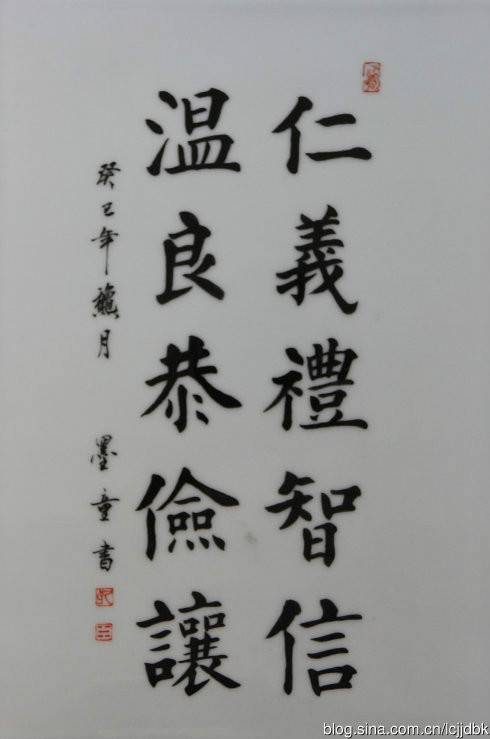 仁義禮智信
温良恭儉讓
癸巳年
月
墨童書
blog.sina.com.cn/lcjjdbk